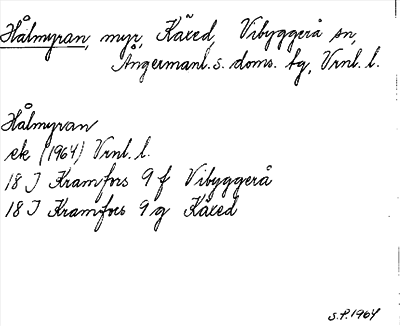 Hålmyran, myr, Käxed, Vibyggerå sn,
Ångermanl. s. doms. tg, Vrnl. l.
Hålmyran
ek (1964) Vrnl. l.
18 J Kramfors 9 f Vibyggerå
18 J Kramfors 9 g Käxed
S.P. 1964